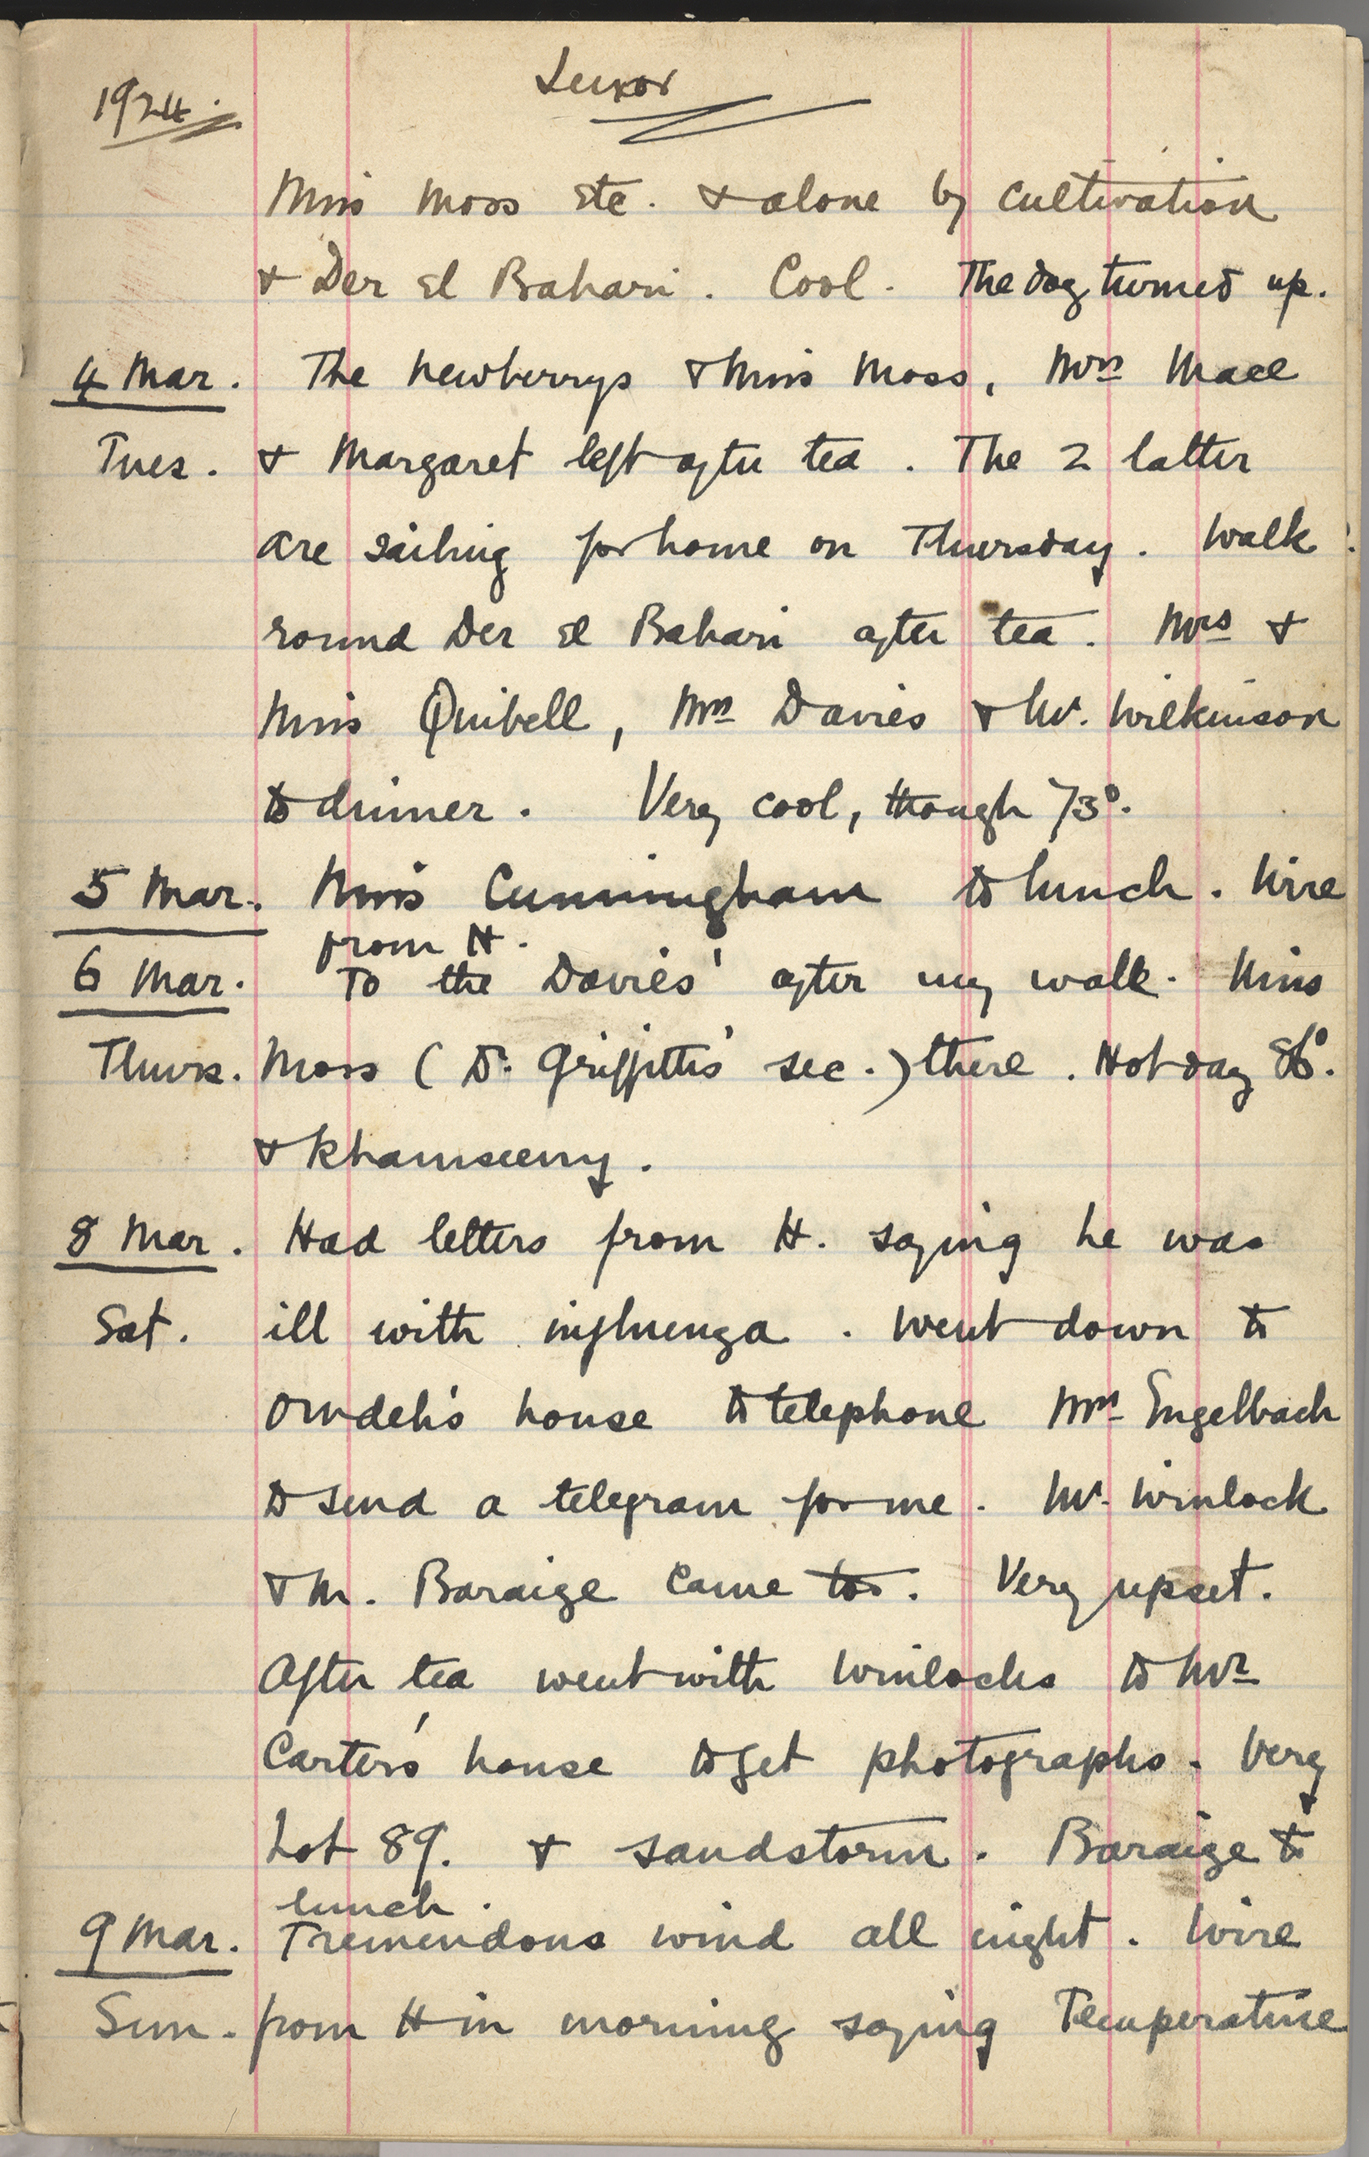 1924.
Luxor
Miss Moss etc. & alone by cultivation
& Der el Bahari. Cool. The dog turned up.
4 Mar. The Newberrys & Miss Moss, Mrs Mace
Tues. & Margaret left after tea. The 2 latter
are sailing for home on Thursday. Walk
round Der el Bahari after tea. Mrs &
Miss Quibell, Mrs Davies & Mr. Wilkinson
to dinner. Very cool, though 73°.
5 Mar. Miss Cunningham to lunch. Wire
from H.
6 Mar. To the Davies' after my walk. Miss
Thurs. Moss (Dr. Griffith's sec.) there. Hot day 86°.
& khamseeny.
8 Mar. Had letters from H. saying he was
Sat. ill with influenza. Went down to
house to telephone Mrs Engelbach
to send a telegram for me. Mr. Winlock
& M. Baraize came too. Very upset.
After tea went with Winlocks to Mr
Carter's house to get photographs. Very
hot 89. & sandstorm. Baraize to
lunch.
9 Mar. Tremendous wind all night. Wire
Sun. from H in morning saying Temperature